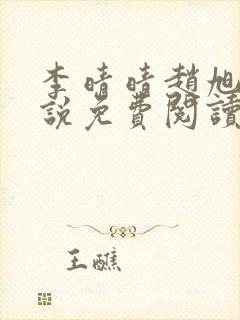 李晴晴趙旭
說免費閱讀
王醮